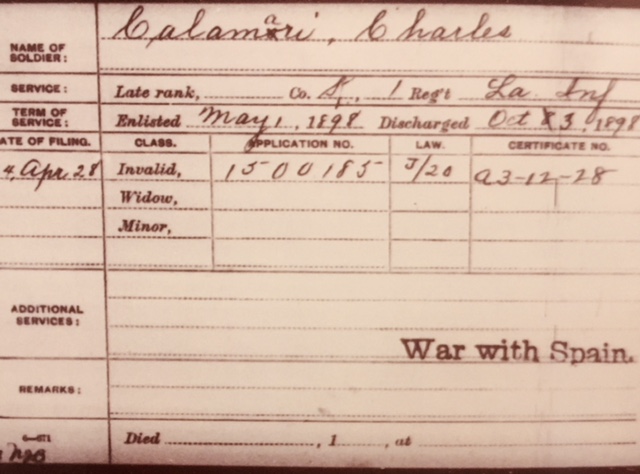 Calamari, Charles
NAME OF
SOLDIER:
SERVICE: Late rank, Co. K, 1 Reg't La Inf
TERM OF
SERVICE: Enlisted May 1, 1898 Discharged Oct 3, 1898
ATE OF FILING. CLASS. APPLICATION NO. LAW. CERTIFICATE NO.
4, Apr 28 Invalid, 1500185 J/20 a3-12-28
Widow,
Minor,
ADDITIONAL
SERVICES:
War with Spain.
REMARKS:
6-671
Died , 1 , at